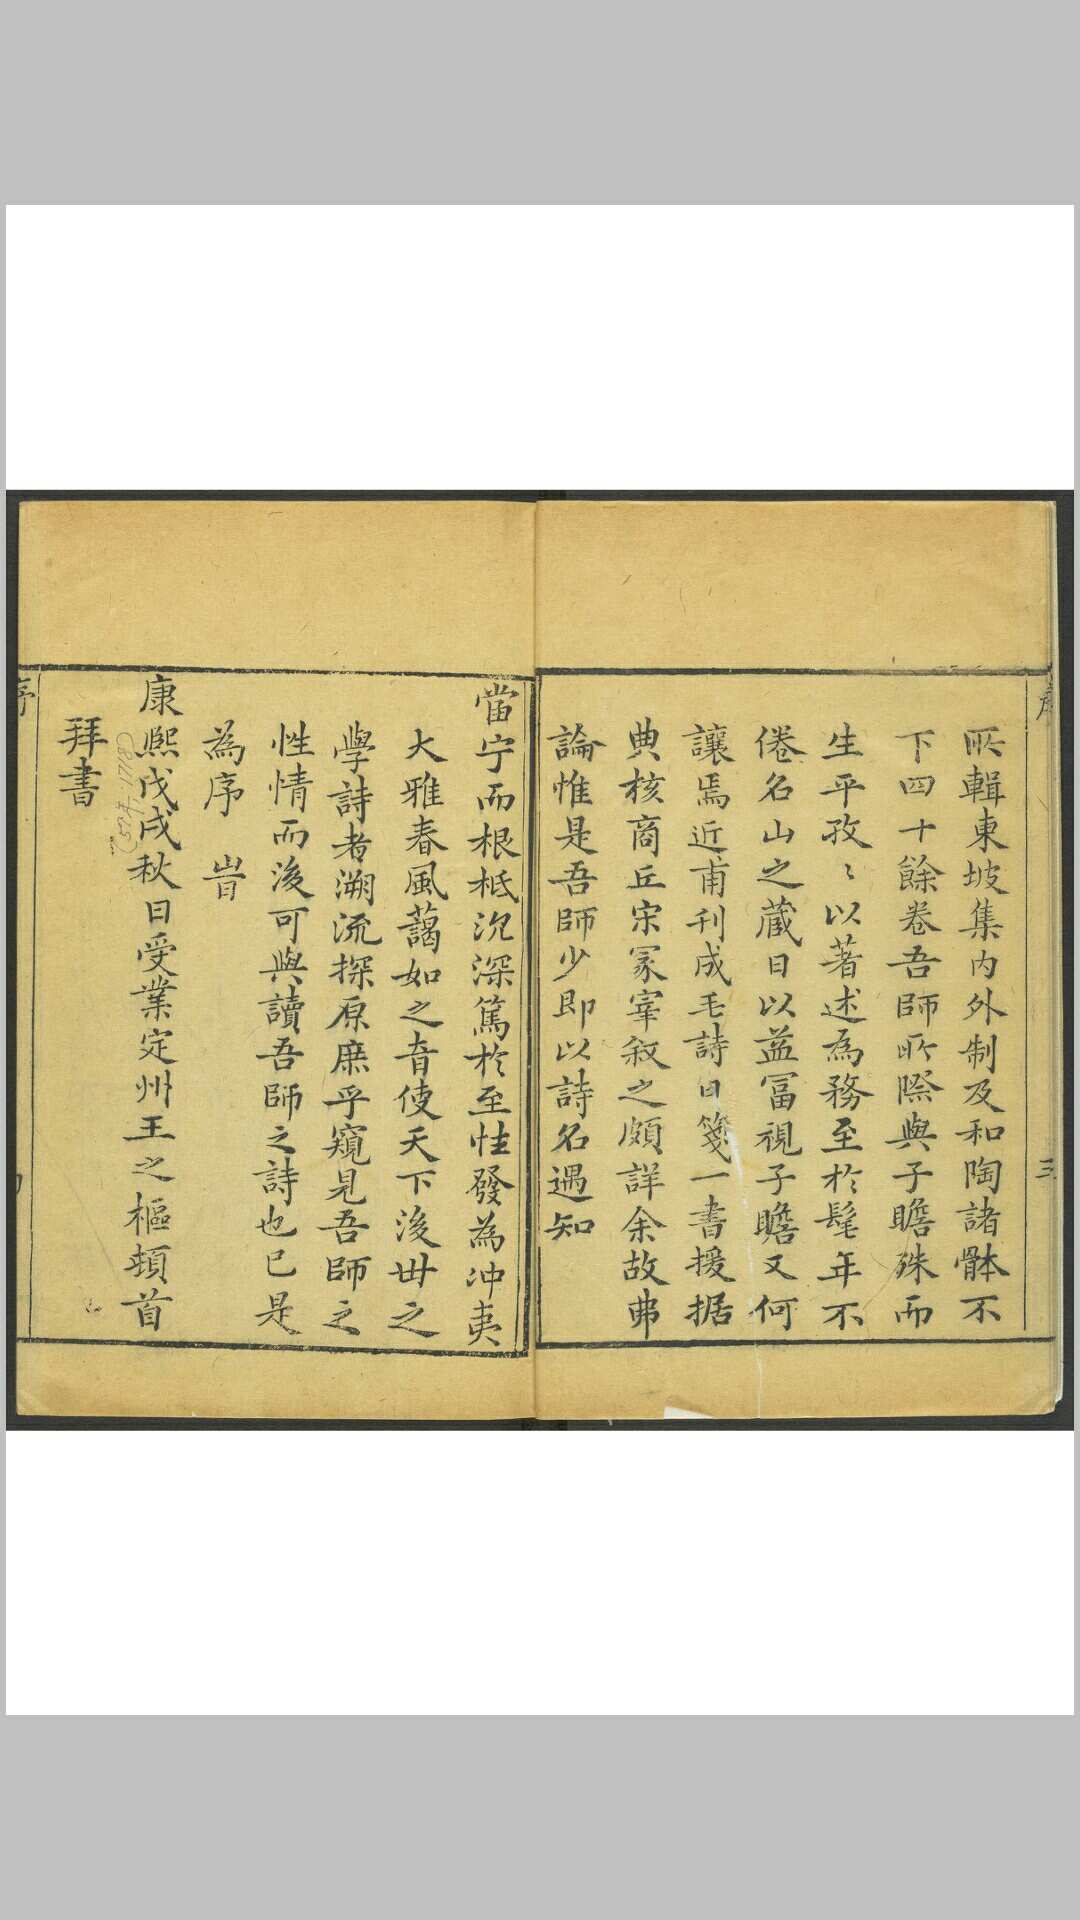 所輯東坡集内外制及和陶諸體不
下四十餘卷吾師所際與子瞻殊而
生平孜〻以著述為務至於髦年不
倦名山之蔵日以益冨視子瞻又何
讓焉近甫刊成毛詩日箋一書援据
典核商丘宋冢宰叙之頗詳余故弗
論惟是吾師少即以詩名遇知
當宁而根柢沉深篤於至性發為冲夷
大雅春風藹如之音使天下後世之
學詩者溯流探原庶乎窺見吾師之
性情而後可與讀吾師之詩也已是
為序 旹
康熙戊戌秋日受業定州王之樞頓首
拜書
序
三
序
(57年-1718)